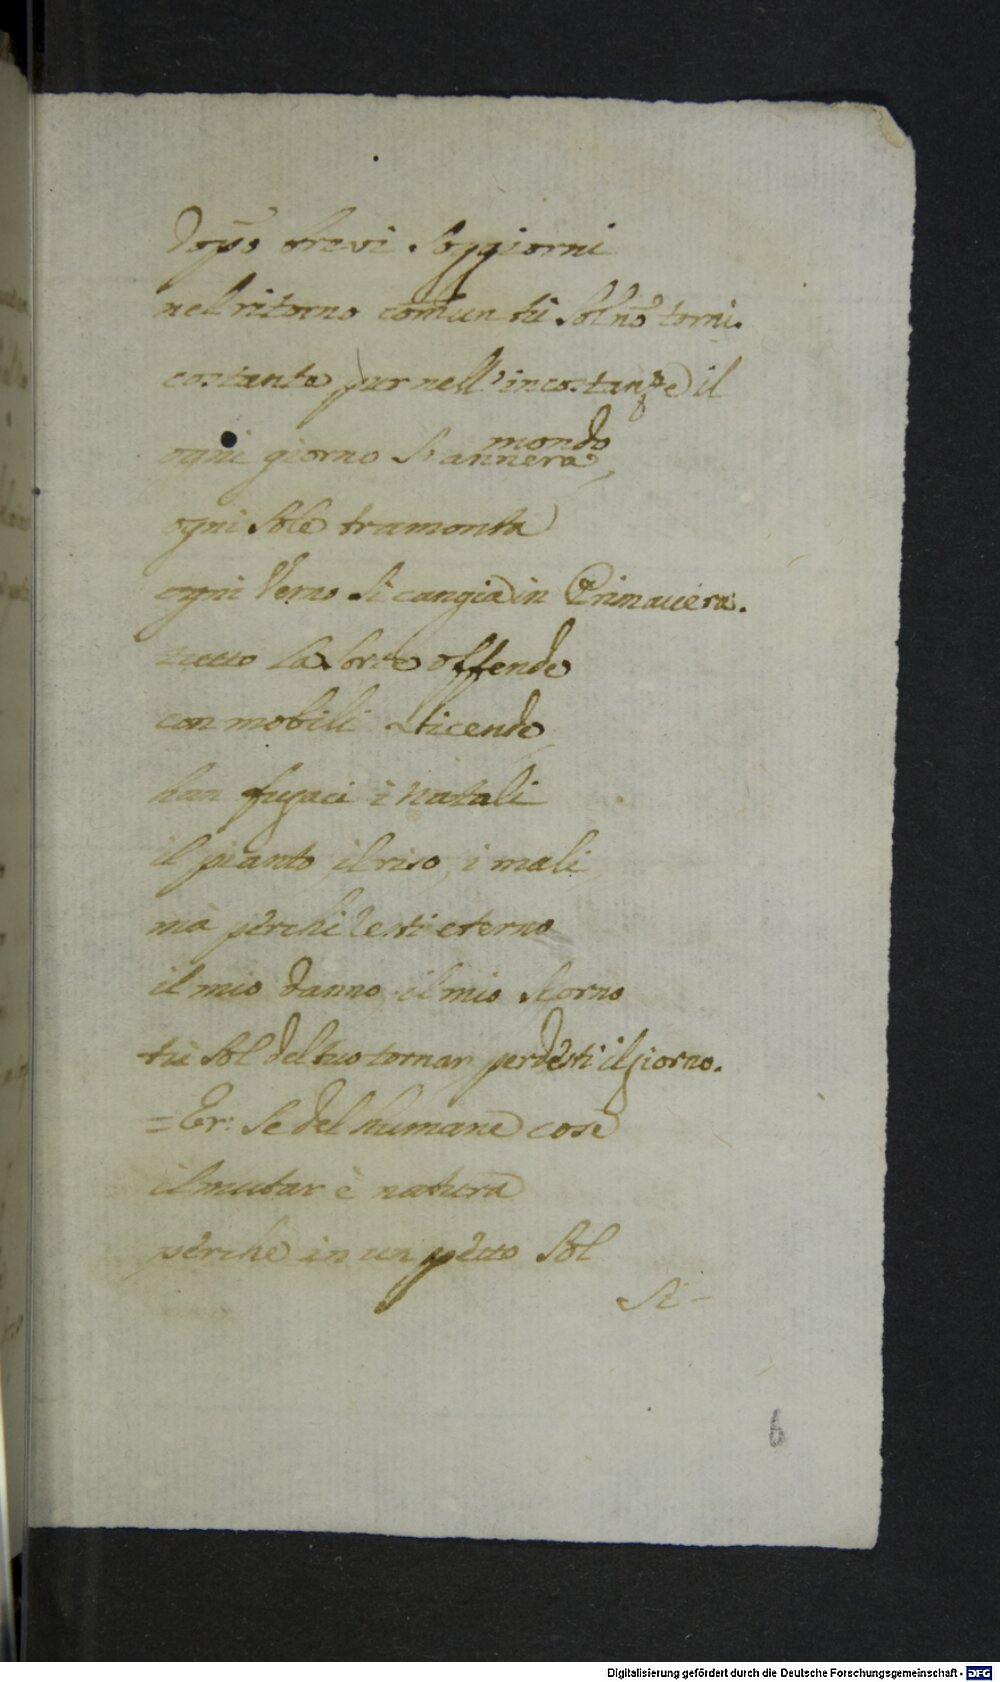 dopo brevi soggiorni
nel ritorno com̃un tù sol nõ torni.
costante pur nell'incostanze il
mondo
ogni giorno s'annera,
ogni sole tramonta
ogni Verno si cangia in Primauera.
tutto la sorte offende
con mobili vicende
han fugaci i natali
il pianto, il riso, i mali
mà perchi resti eterno
il mio danno, il mio scorno
tù sol del tuo tornar perdesti il giorno.
= Er: Se del humane cose
il mutar è natura
perche in un petto sol
si-
6
Digitalisierung gefördert durch die Deutsche Forschungsgemeinschaft - DFG